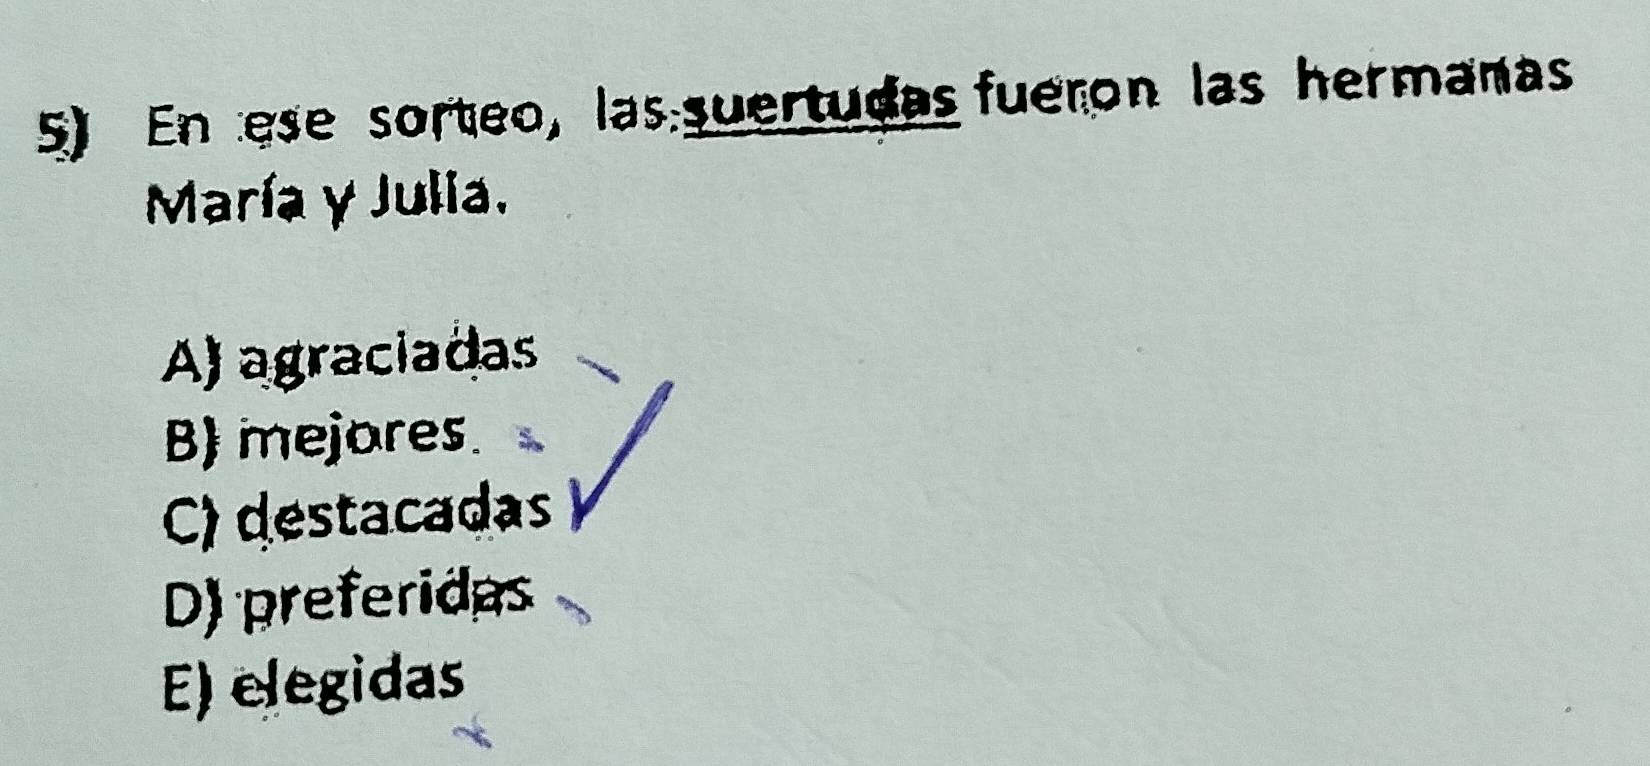 5) En ese sorteo, las suertudas fueron las hermanas
María y Julia.
A) agraciadas
B) mejores.
C) destacadas
D) preferidas
E) elegidas